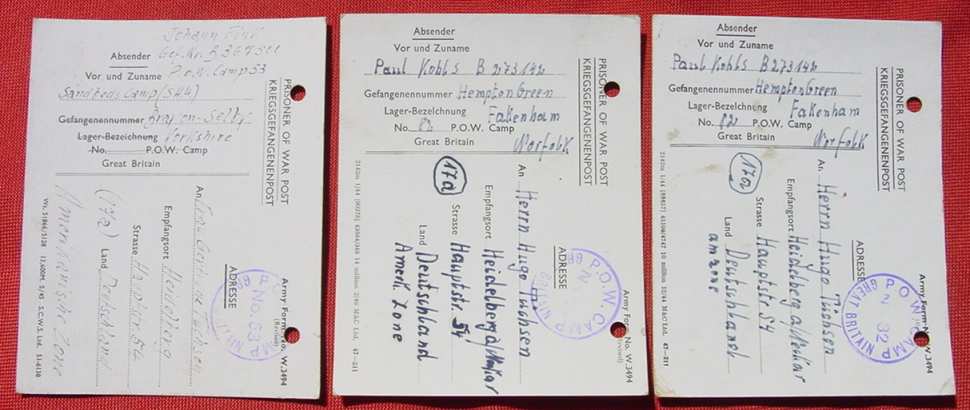 Johann
Absender
Vor und Zuname P.o.W. Camp 53
Sandbeds Camp
Gefangenennummer
Lager-Bezeichnung Yorkshire
No. P.O.W. Camp
Great Britain
PRISONER OF WAR POST
KRIEGSGEFANGENENPOST
ADRESSE
An Frau
Empfangsort Heidelberg
Strasse Hauptstr. 54
(17a) Land Deutschland
Amerikanische Zone
Army Form No. W.3494
(Revised)
Absender
Vor und Zuname
Paul Kobbs B 273142
Gefangenennummer Hempton Green
Lager-Bezeichnung Fakenham
No. 82 P.O.W. Camp Norfolk
Great Britain
PRISONER OF WAR POST
KRIEGSGEFANGENENPOST
ADRESSE
An Herrn Hugo Püchsen
Empfangsort Heidelberg a/Neckar
17a Strasse Hauptstr. 54
Land Deutschland
Amerik. Zone
Army Form No. W.3494
P.O.W. CAMP
Absender
Vor und Zuname
Paul Kobbs B 273142
Gefangenennummer Hempton Green
Lager-Bezeichnung Fakenham
No. 82 P.O.W. Camp
Great Britain Norfolk
PRISONER OF WAR POST
KRIEGSGEFANGENENPOST
ADRESSE
An Herrn Hugo Püchsen
Empfangsort Heidelberg a/Neckar
17a Strasse Hauptstr. 54
Land Deutschland
am zone
Army Form No. W.3494
P.O.W. CAMP
GREAT BRITAIN